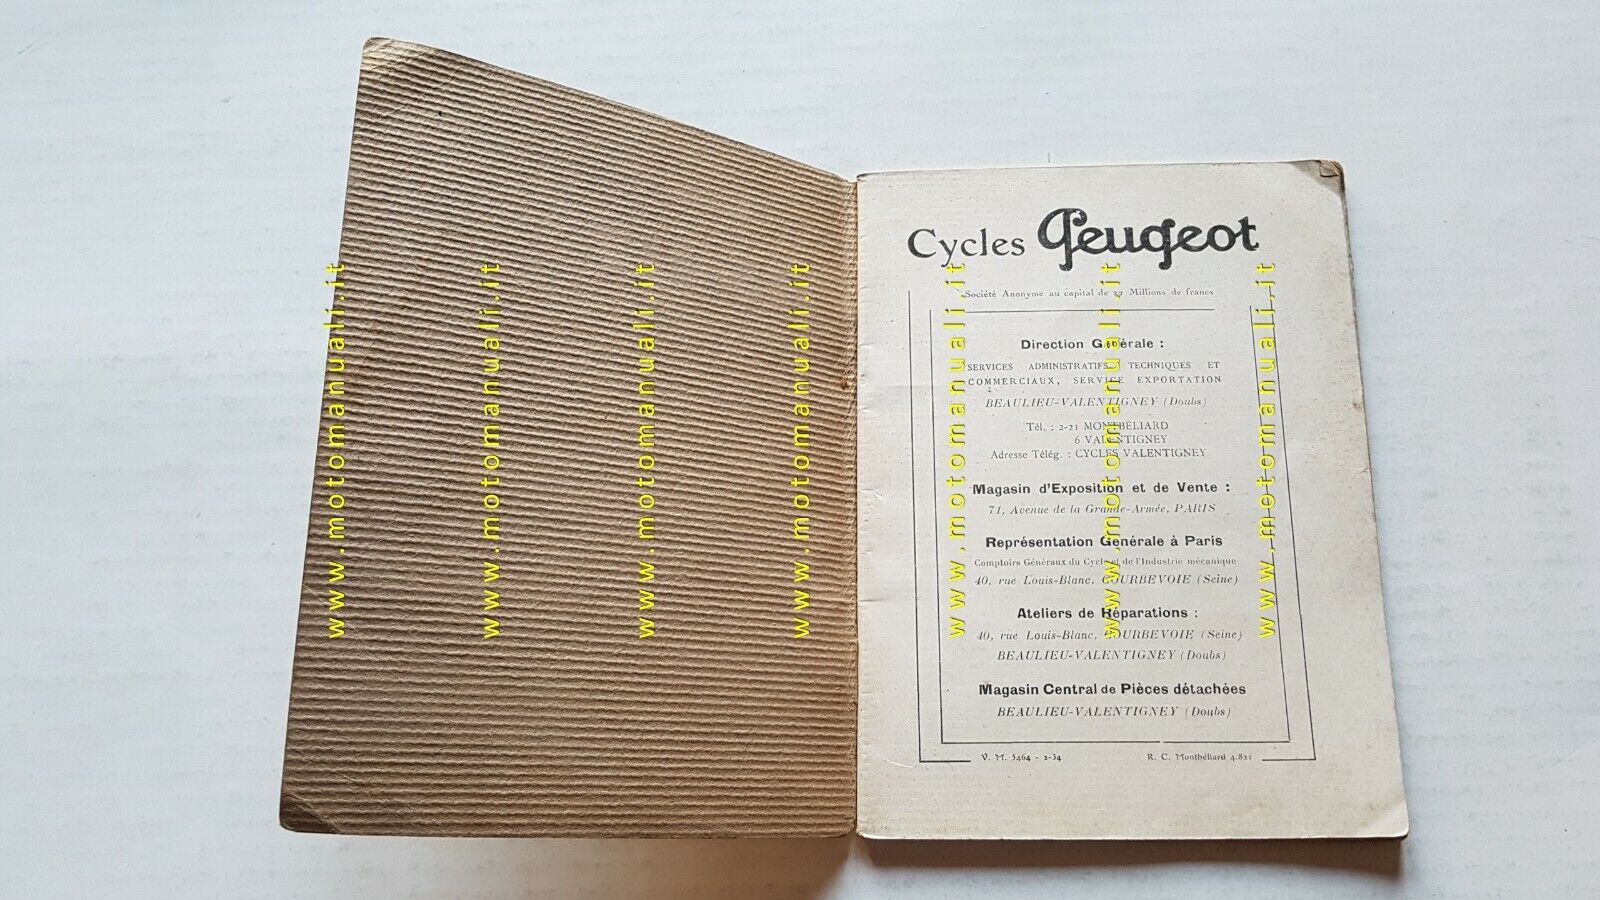 Cycles Peugeot
Société Anonyme au capital de 22 Millions de francs
Direction Générale :
SERVICES ADMINISTRATIFS, TECHNIQUES ET
COMMERCIAUX, SERVICE EXPORTATION
BEAULIEU-VALENTIGNEY (Doubs)
Tél. : 2-21 MONTBÉLIARD
6 VALENTIGNEY
Adresse Télég. : CYCLES VALENTIGNEY
Magasin d'Exposition et de Vente :
71, Avenue de la Grande-Armée, PARIS
Représentation Générale à Paris
Comptoirs Généraux du Cycle et de l'Industrie mécanique
40, rue Louis-Blanc, COURBEVOIE (Seine)
Ateliers de Réparations :
40, rue Louis-Blanc, COURBEVOIE (Seine)
BEAULIEU-VALENTIGNEY (Doubs)
Magasin Central de Pièces détachées
BEAULIEU-VALENTIGNEY (Doubs)
V. M. 5464 - 2-34
R. C. Montbéliard 4.821
www.motomanuali.it
www.motomanuali.it
www.motomanuali.it
www.motomanuali.it
www.motomanuali.it
www.motomanuali.it
www.motomanuali.it